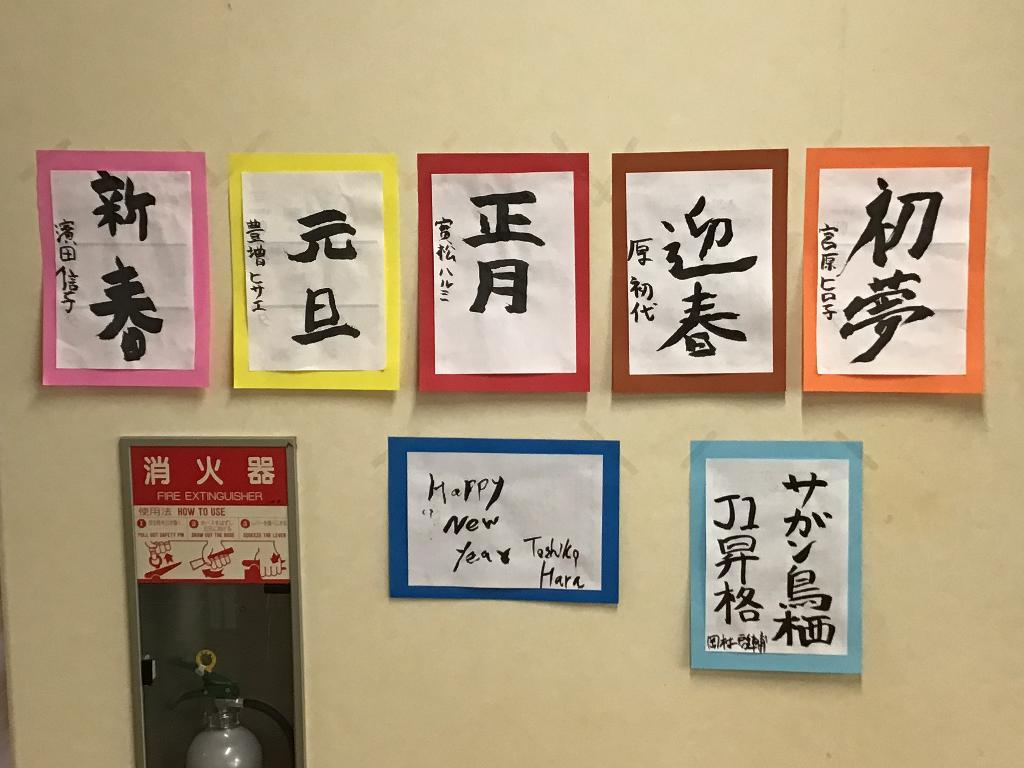 新春
濱田信子
元旦
豊増ヒサエ
正月
實松ハルミ
迎春
原初代
初夢
宮原ヒロ子
消火器
FIRE EXTINGUISHER
使用法 HOW TO USE
1
2
3
PULL OUT SAFETY PIN
DRAW OUT THE HOSE
SQUEEZE THE LEVER
Happy
New
Year
Toshiko
Hara
サガン鳥栖
J1昇格